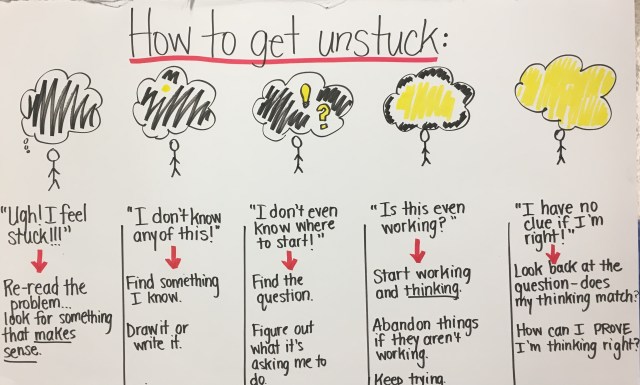 How to get unstuck:
"Ugh! I feel
stuck!!!"
Re-read the
problem...
look for something
that makes
sense.
"I don't know
any of this!"
Find something
I know.
Draw it or
write it.
! ?
"I don't even
know where
to start!"
Find the
question.
Figure out
what it's
asking me to
do.
"Is this even
working?"
Start working
and thinking.
Abandon things
if they aren't
working.
Keep trying.
"I have no
clue if I'm
right!"
Look back at the
question-does
my thinking match?
How can I PROVE
I'm thinking right?